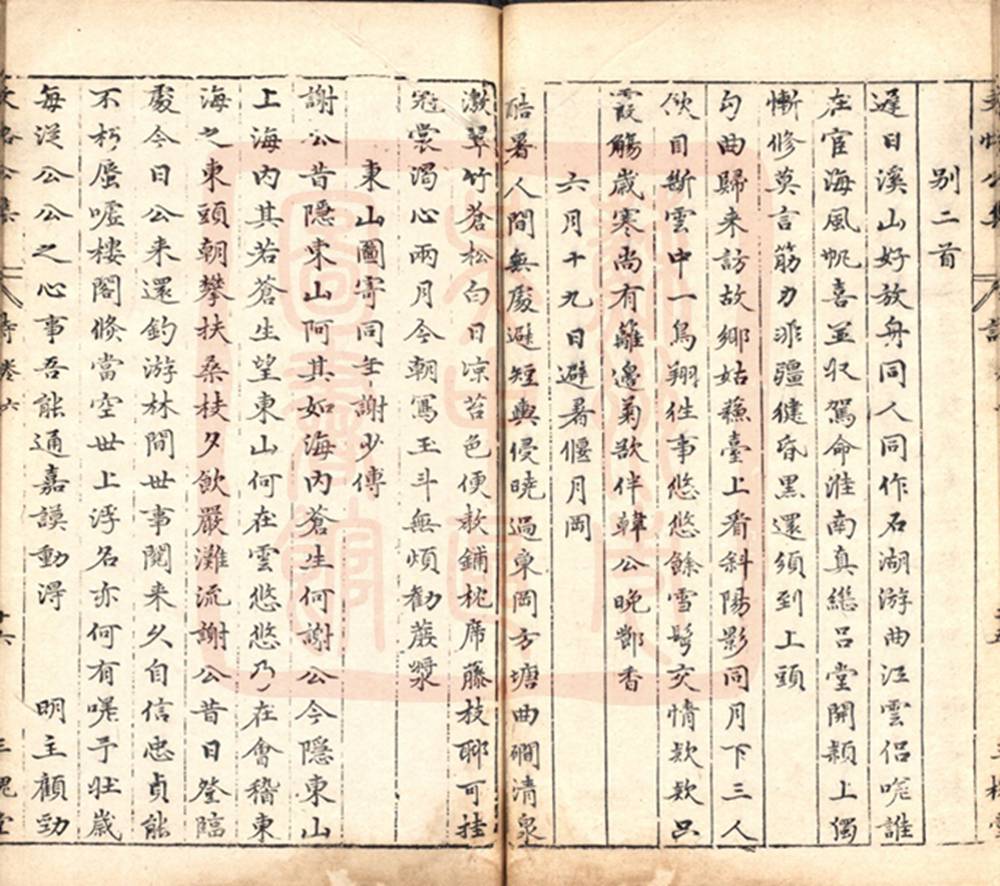 别二首
遲日溪山好放舟同人同作石湖游曲江雲侣呢誰
在宦海風帆喜並収駕命淮南真繼吕堂開潁上獨
慚修莫言筋力非彊健昏黑還須到上頭
勾曲歸来訪故鄉姑蘇臺上看斜陽影同月下三人
伙目斷雲中一鳥翔徃事悠悠餘雪髩交情欵欵出
霞觴歲寒尚有籬邊菊歌伴韓公晚節香
六月十九日避暑偃月岡
酷暑人間無處避短輿侵曉過東岡方塘曲磵清泉
潄翠竹蒼松白日凉苔色便教鋪枕席藤枝聊可挂
冠裳濁心兩月今朝寫玉斗無煩勸蔗漿
東山圖寄同年謝少傅
謝公昔隠東山阿其如海内蒼生何謝公今隠東山
上海内其若蒼生望東山何在雲悠悠乃在會稽東
海之東頭朝攀扶桑枝夕飲嚴灘流謝公昔日登臨
處今日公来還釣游林間世事閱来久自信忠貞能
不朽蜃嘘樓閣倐當空世上浮名亦何有嗟予壮歲
每從公公之心事吾能通嘉謨動得 明主顧勁